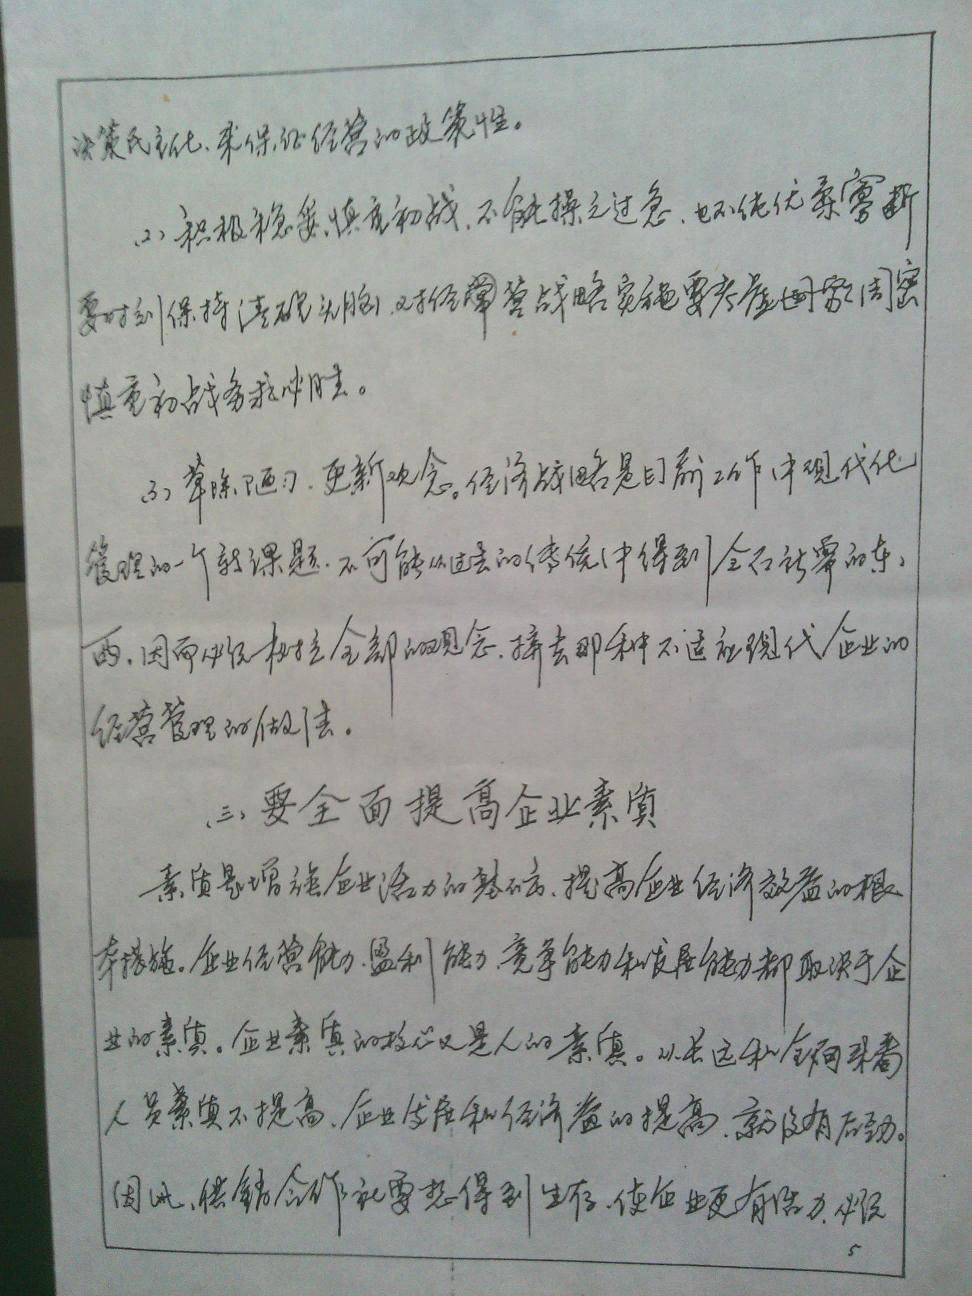 决策民主化、来保证经营的政策性。
(2) 积极稳妥,慎重初战,不能操之过急,也不能优柔寡断
要时刻保持清醒头脑,对经营战略实施要考虑周密
慎重初战务求必胜。
(3) 革除陋习,更新观念。经济战略是目前工作中现代化
管理的一个新课题,不可能从过去的传统中得到全所需要的东
西,因而必须树立全部的观念,摔去那种不适应现代企业的
经营管理的做法。
三、要全面提高企业素质
素质是增强企业活力的基础,提高企业经济效益的根
本措施。企业经营能力、盈利能力、竞争能力和发展能力都取决于企
业的素质。企业素质的核心又是人的素质。从长远和全局来看
人员素质不提高,企业发展和经济益的提高,就没有后劲。
因此,供销合作社要想得到生存,使企业更有活力,必须
5